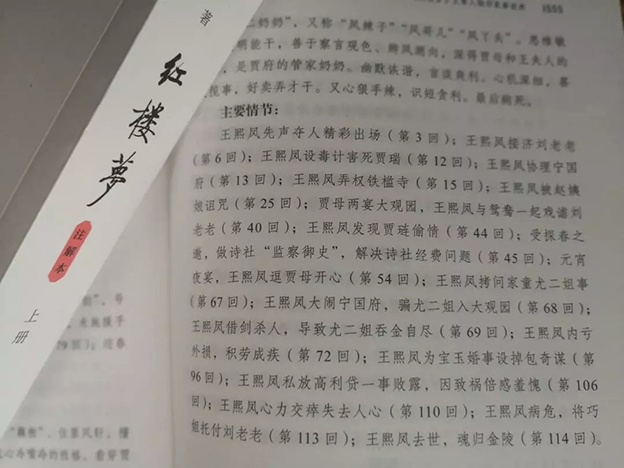 著
红楼梦
注解本
上册
二奶奶”，又称“凤辣子”“凤哥儿”“凤丫头”。思维敏
明能干，善于察言观色、揣风测向，深得贾母和王夫人的
，是贾府的管家奶奶。幽默诙谐，言谈爽利，心机深细，喜
揽事，好卖弄才干。又心狠手辣，识短贪利。最后病死。
主要情节：
王熙凤先声夺人精彩出场（第3回）；王熙凤接济刘老老
（第6回）；王熙凤设毒计害死贾瑞（第12回）；王熙凤协理宁国
府（第13回）；王熙凤弄权铁槛寺（第15回）；王熙凤被赵姨
娘诅咒（第25回）；贾母两宴大观园，王熙凤与鸳鸯一起戏谑刘
老老（第40回）；王熙凤发现贾琏偷情（第44回）；受探春之
邀，做诗社“监察御史”，解决诗社经费问题（第45回）；元宵
夜宴，王熙凤逗贾母开心（第54回）；王熙凤拷问家童尤二姐事
（第67回）；王熙凤大闹宁国府，骗尤二姐入大观园（第68回）；
王熙凤借剑杀人，导致尤二姐吞金自尽（第69回）；王熙凤内亏
外损，积劳成疾（第72回）；王熙凤为宝玉婚事设掉包奇谋（第
96回）；王熙凤私放高利贷一事败露，因致祸倍感羞愧（第106
回）；王熙凤心力交瘁失去人心（第110回）；王熙凤病危，将巧
姐托付刘老老（第113回）；王熙凤去世，魂归金陵（第114回）。